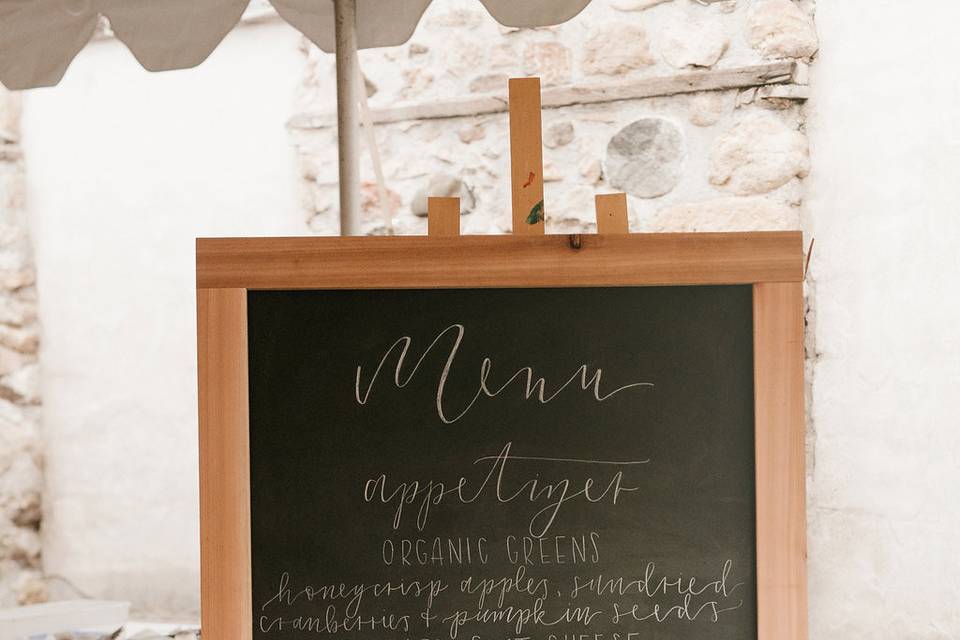 Menu
appetizer
ORGANIC GREENS
honeycrisp apples, sundried
cranberries + pumpkin seeds
CHEESE